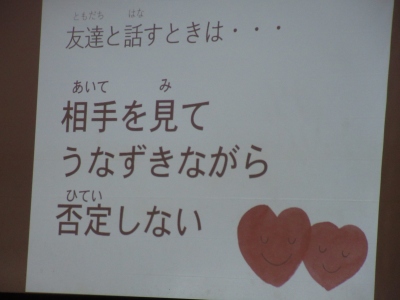 ともだち　はな
友達と話すときは・・・
あいて　み
相手を見て
うなずきながら
ひてい
否定しない